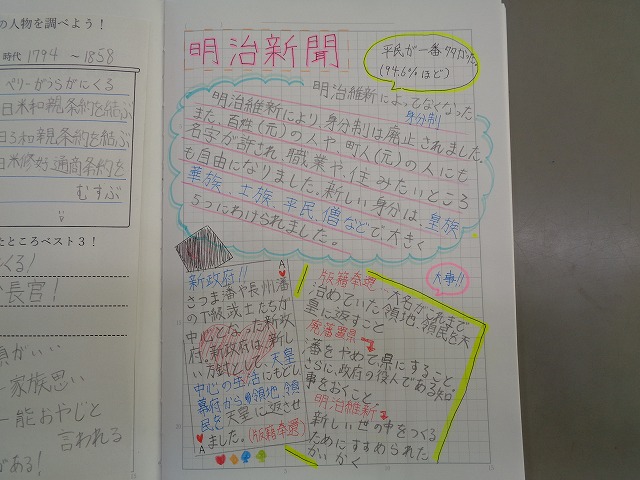 の人物を調べよう！
時代 1794 ～1858
ペリーがうらがにくる
日米和親条約を結ぶ
日ろ和親条約を結ぶ
日米修好通商条約を
むすぶ
たところベスト3！
くる！
長官！
家族思い
能おやじと
言われる
がある！
明治新聞
平民が一番多かった
(94.6%ほど)
明治維新によってなくなった
身分制
明治維新により、身分制は廃止されました。
また、百姓(元)の人や、町人(元)の人にも
名字が許され、職業や、住みたいところ
も自由になりました。新しい身分は、皇族
華族、士族、平民、僧などで、大きく
5つにわけられました。
新政府!!
さつま藩や長州藩
の下級武士たちが
中心となった新政
府。新政府は、新し
い方針として、天皇
中心の生活にもどし
幕府から領地、領
民を天皇に返させ
ました。(版籍奉還)
A
A
大事!!
版籍奉還 大名がこれまで
治めていた領地、領民を天
皇に返すこと
廃藩置県
藩をやめて、県にすること。
さらに、政府の役人である知
事をおくこと。
明治維新
新しい世の中をつくる
ためにすすめられた
かいかく